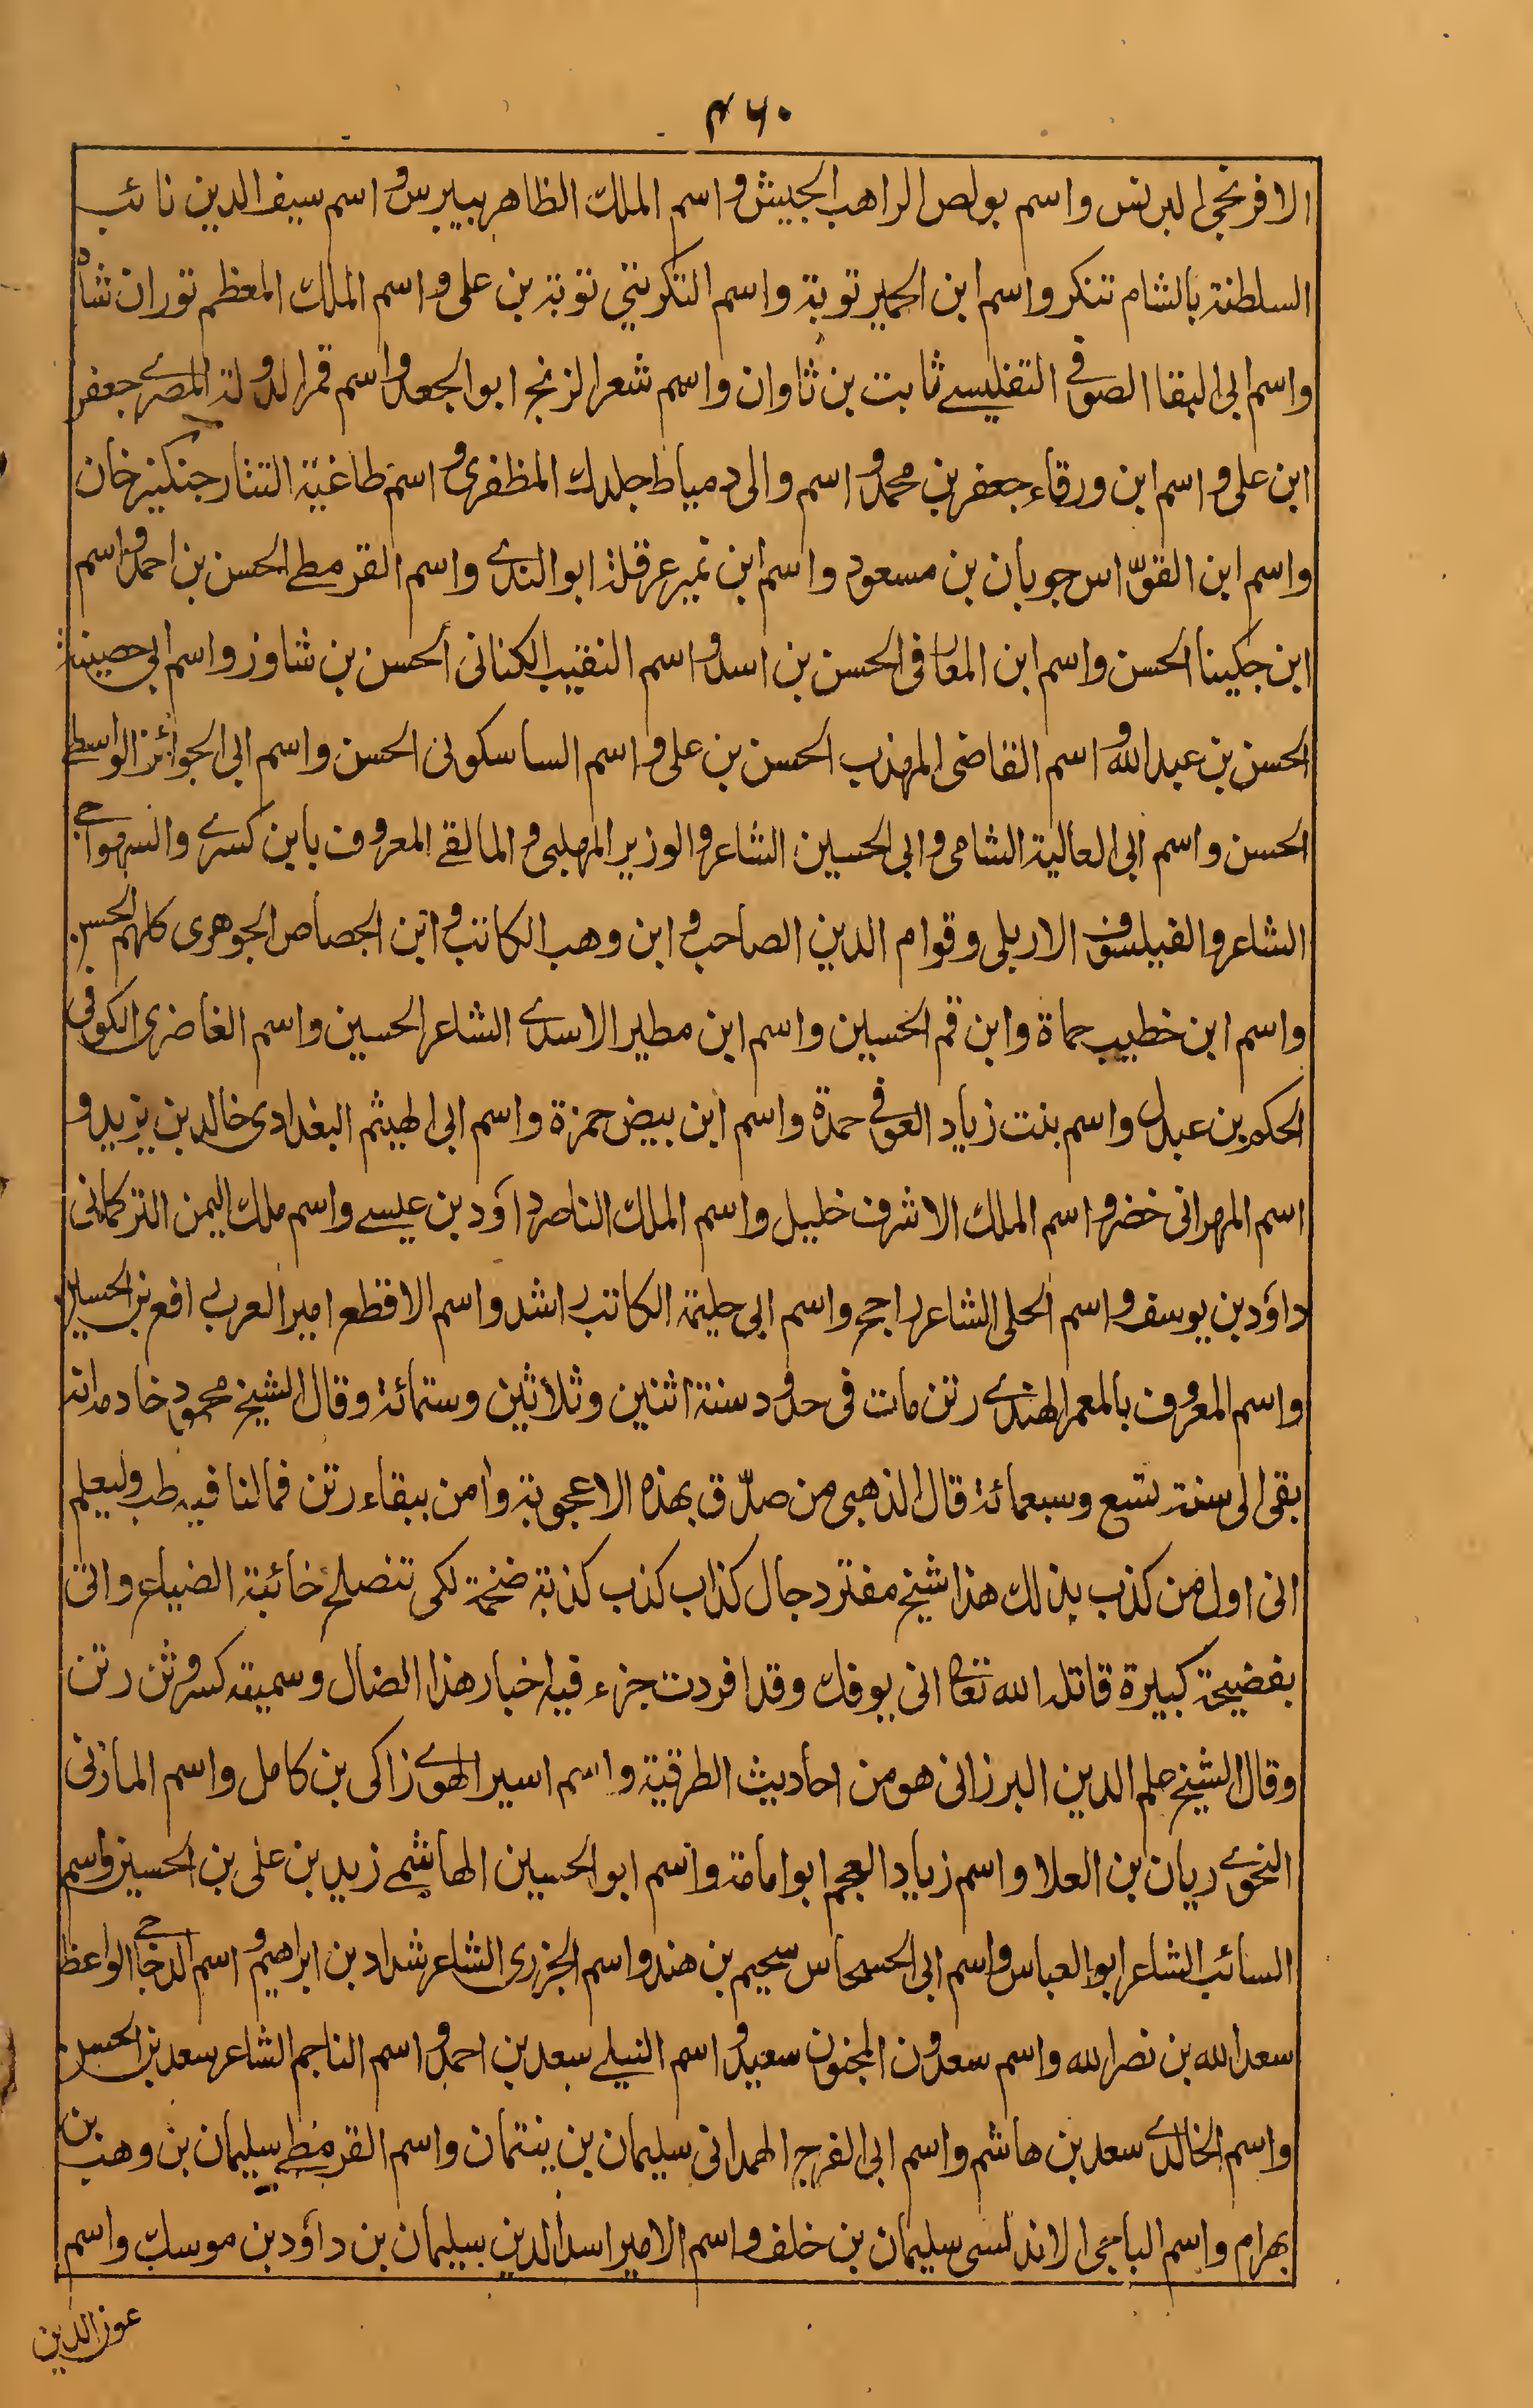 ۴۶۰
الافرنجی البرنس واسم بولص الراهب الجیش واسم الملك الظاهر بیبرس واسم سیف الدین نائب
السلطنة بالشام تنکر واسم ابن الحمیر توبة واسم التکریتی توبة بن علی واسم الملك المعظم توران شاه
واسم ابی البقا الصوفی التفلیسے ثابت بن ثاوان واسم شعر الزنج ابو الجعد واسم قمر الدولة المصرے جعفر
ابن علی واسم ابن ورقاء جعفر بن محمد واسم والی دمیاط جلدك المظفری واسم طاغیة التتار جنکیز خان
واسم ابن القوّاس جوبان بن مسعود واسم ابن نمیر عرقلة ابو الندے واسم القرمطے الحسن بن احمد واسم
ابن جکینا الحسن واسم ابن المعافی الحسن بن اسد واسم النقیب الکنانی الحسن بن شاور واسم ابی حصینة
الحسن بن عبد الله واسم القاضی المهذب الحسن بن علی واسم الساسکونی الحسن واسم ابی الجوائز الواسطے
الحسن واسم ابی العالیة الشامی وابی الحسین الشاعر والوزیر المهلبی والمالقے المعروف بابن کسرے والسهواجی
الشاعر والفیلسوف الاربلی وقوام الدین الصاحب وابن وهب الکاتب وابن الجصاص الجوهری کلهم الحسن
واسم ابن خطیب حماة وابن قم الحسین واسم ابن مطیر الاسدے الشاعر الحسین واسم الغاضری الکوفی
الحکم بن عبدل واسم بنت زیاد العوفی حمدة واسم ابن بیض حمزة واسم ابی الهیثم البغدادی خالد بن یزید و
اسم المهرانی خضر واسم الملك الاشرف خلیل واسم الملك الناصر داؤد بن عیسے واسم ملك الیمن الترکمانی
داؤد بن یوسف واسم الحلی الشاعر راجح واسم ابی حلیمة الکاتب راشد واسم الاقطع امیر العرب رافع بن الحسین
واسم المعروف بالمعمر الهندے رتن مات فی حدود سنة اثنین وثلاثین وستمائة وقال الشیخ محمود خادم انه
بقی الی سنة تسع وسبعمائة قال الذهبی من صدّق بهذه الاعجوبة وامن ببقاء رتن فما لنا فیه طب ولیعلم
انی اول من کذب بذلك هذا شیخ مفتر دجال کذاب کذب کذبة ضخمة لکی تنصلح خائبة الضیاع واتی
بفضیحة کبیرة قاتله الله تعالی انی یوفك وقد افردت جزء فیه اخبار هذا الضال وسمیته کسر وثن رتن
وقال الشیخ علم الدین البرزانی هو من احادیث الطرقیة واسم اسیر الهوے زاکی بن کامل واسم المازنی
النحوے ریان بن العلا واسم زیاد العجم ابو امامة واسم ابو الحسین الهاشمے زید بن علی بن الحسین واسم
السائب الشاعر ابو العباس واسم ابی الحسحاس سحیم بن هند واسم الجزری الشاعر شداد بن ابراهیم واسم الدجاجی الواعظ
سعد الله بن نصر الله واسم سعدون المجنون سعید واسم النیلے سعد بن احمد واسم الناجم الشاعر سعد بن الحسن
واسم الخالدے سعد بن هاشم واسم ابی الفرج الهمدانی سلیمان بن ینتمان واسم القرمطے سلیمان بن وهب بن
بهرام واسم الباجی الاندلسی سلیمان بن خلف واسم الامیر اسد الدین سلیمان بن داؤد بن موسك واسم
عوز الدین